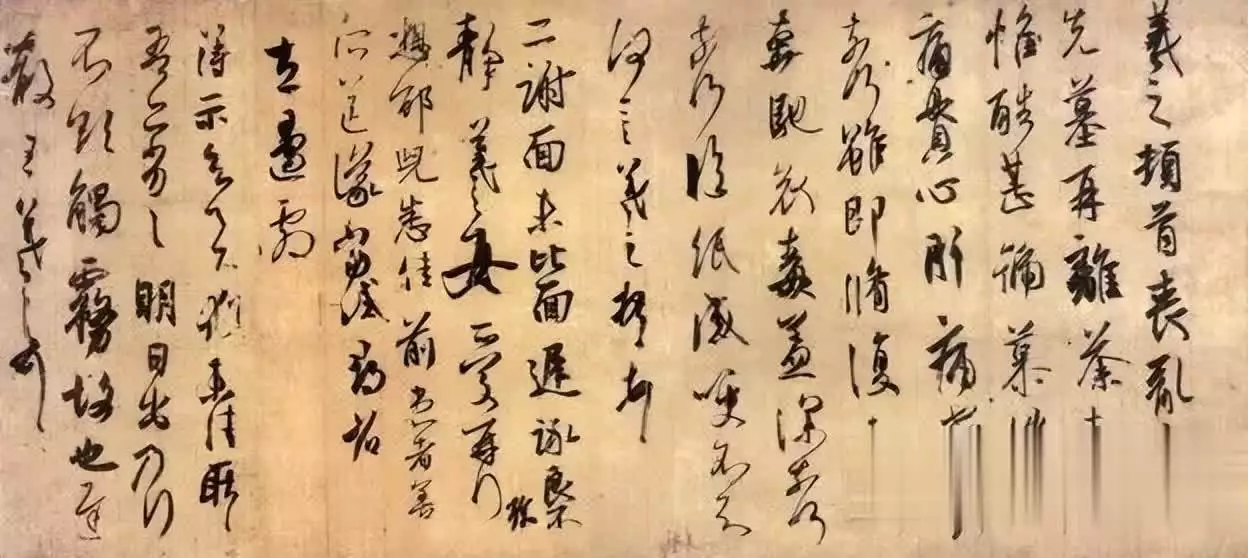 羲之頓首喪亂
先墓再離荼
惟酷甚號慕
痛貫心肝痛
奈何雖即脩復
奔馳哀毒益深奈何
奈何臨紙感哽不知
何言羲之頓首
二謝面未比面遲詠良不
靜羲之女愛再拜
想邵兒悉佳前患者善
所送議當試尋省
左邊劇
得示知足下猶未佳耿耿
吾亦劣劣明日出乃行
不欲觸霧故也遲
散王羲之頓首